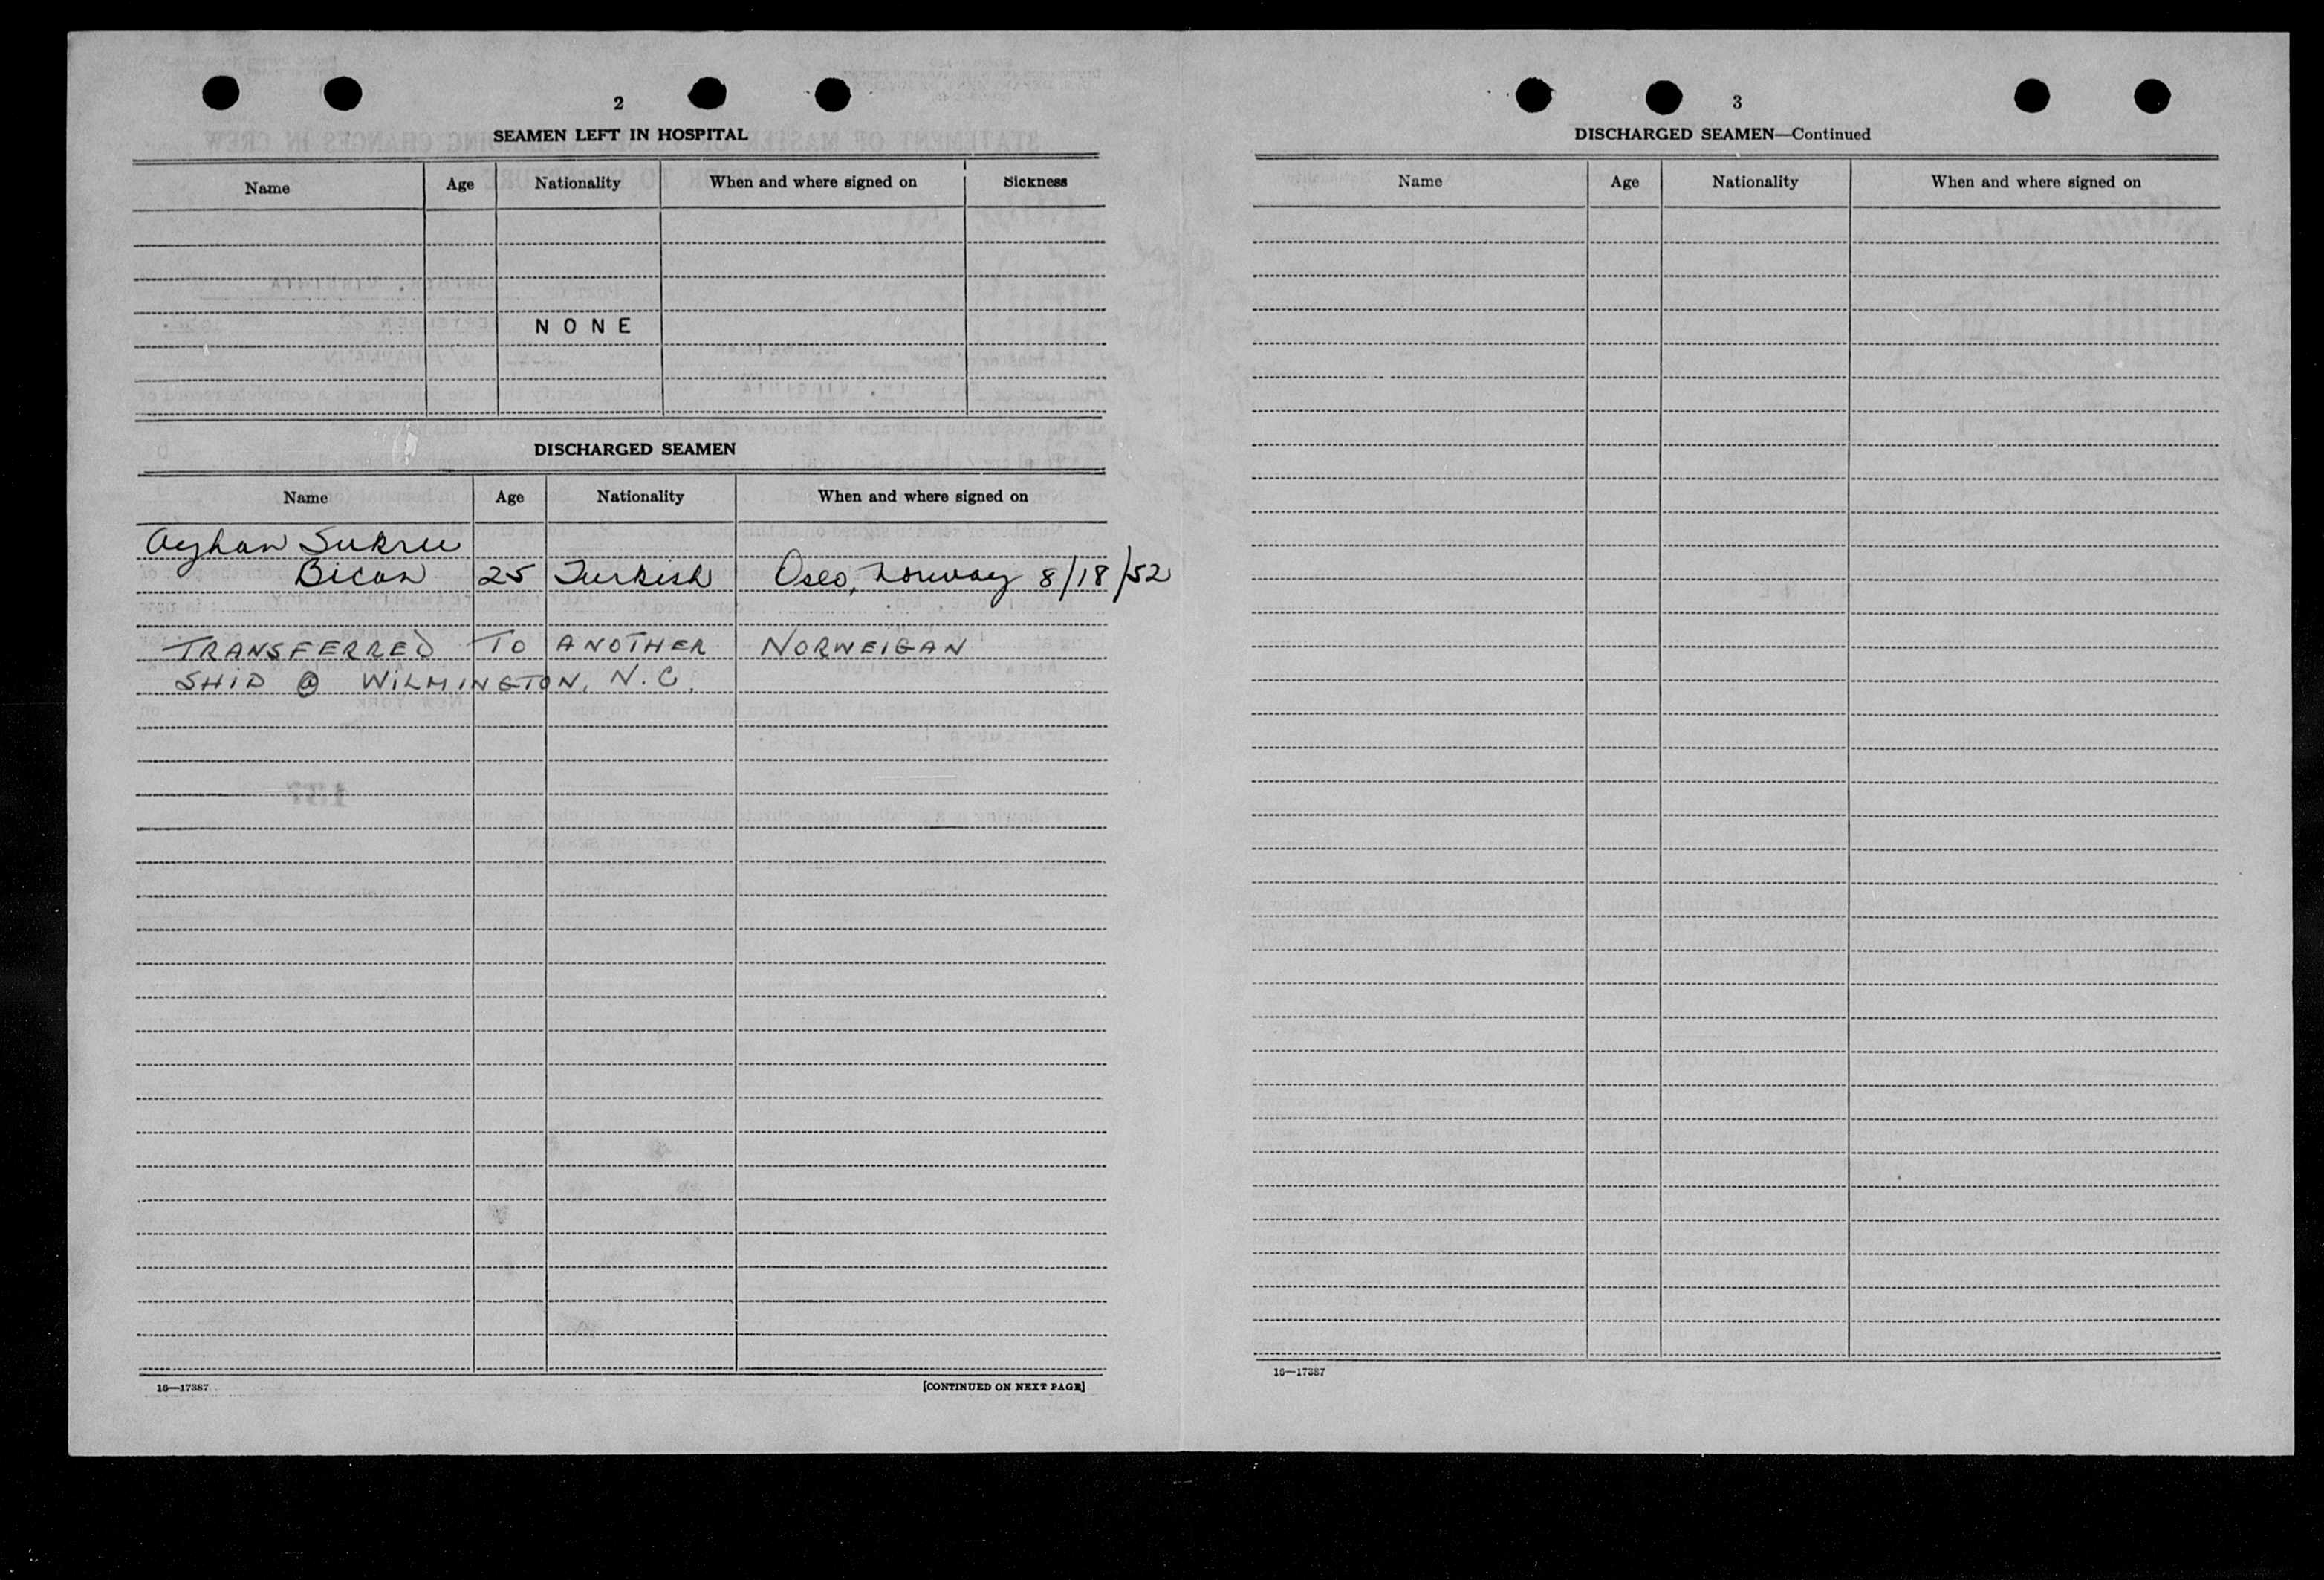 2
SEAMEN LEFT IN HOSPITAL
Name Age Nationality When and where signed on Sickness
NONE
DISCHARGED SEAMEN
Name Age Nationality When and where signed on
Ayhan Sukru
Bican 25 Turkish Oslo, Norway 8/18/52
TRANSFERRED TO ANOTHER NORWEIGAN
SHIP @ WILMINGTON, N.C.
16—17387
[CONTINUED ON NEXT PAGE]
3
DISCHARGED SEAMEN—Continued
Name Age Nationality When and where signed on
16—17387